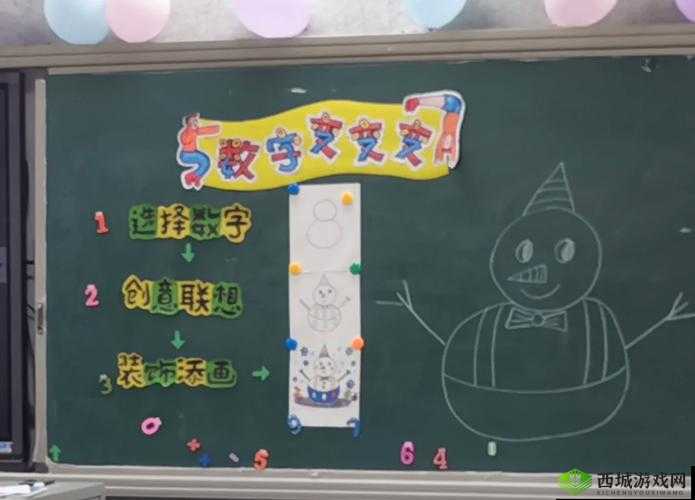 数字变变变
1 选择数字
2 创意联想
3 装饰添画
0
5
6
4
0
西城游戏网
XICHENGYOUXIWANG